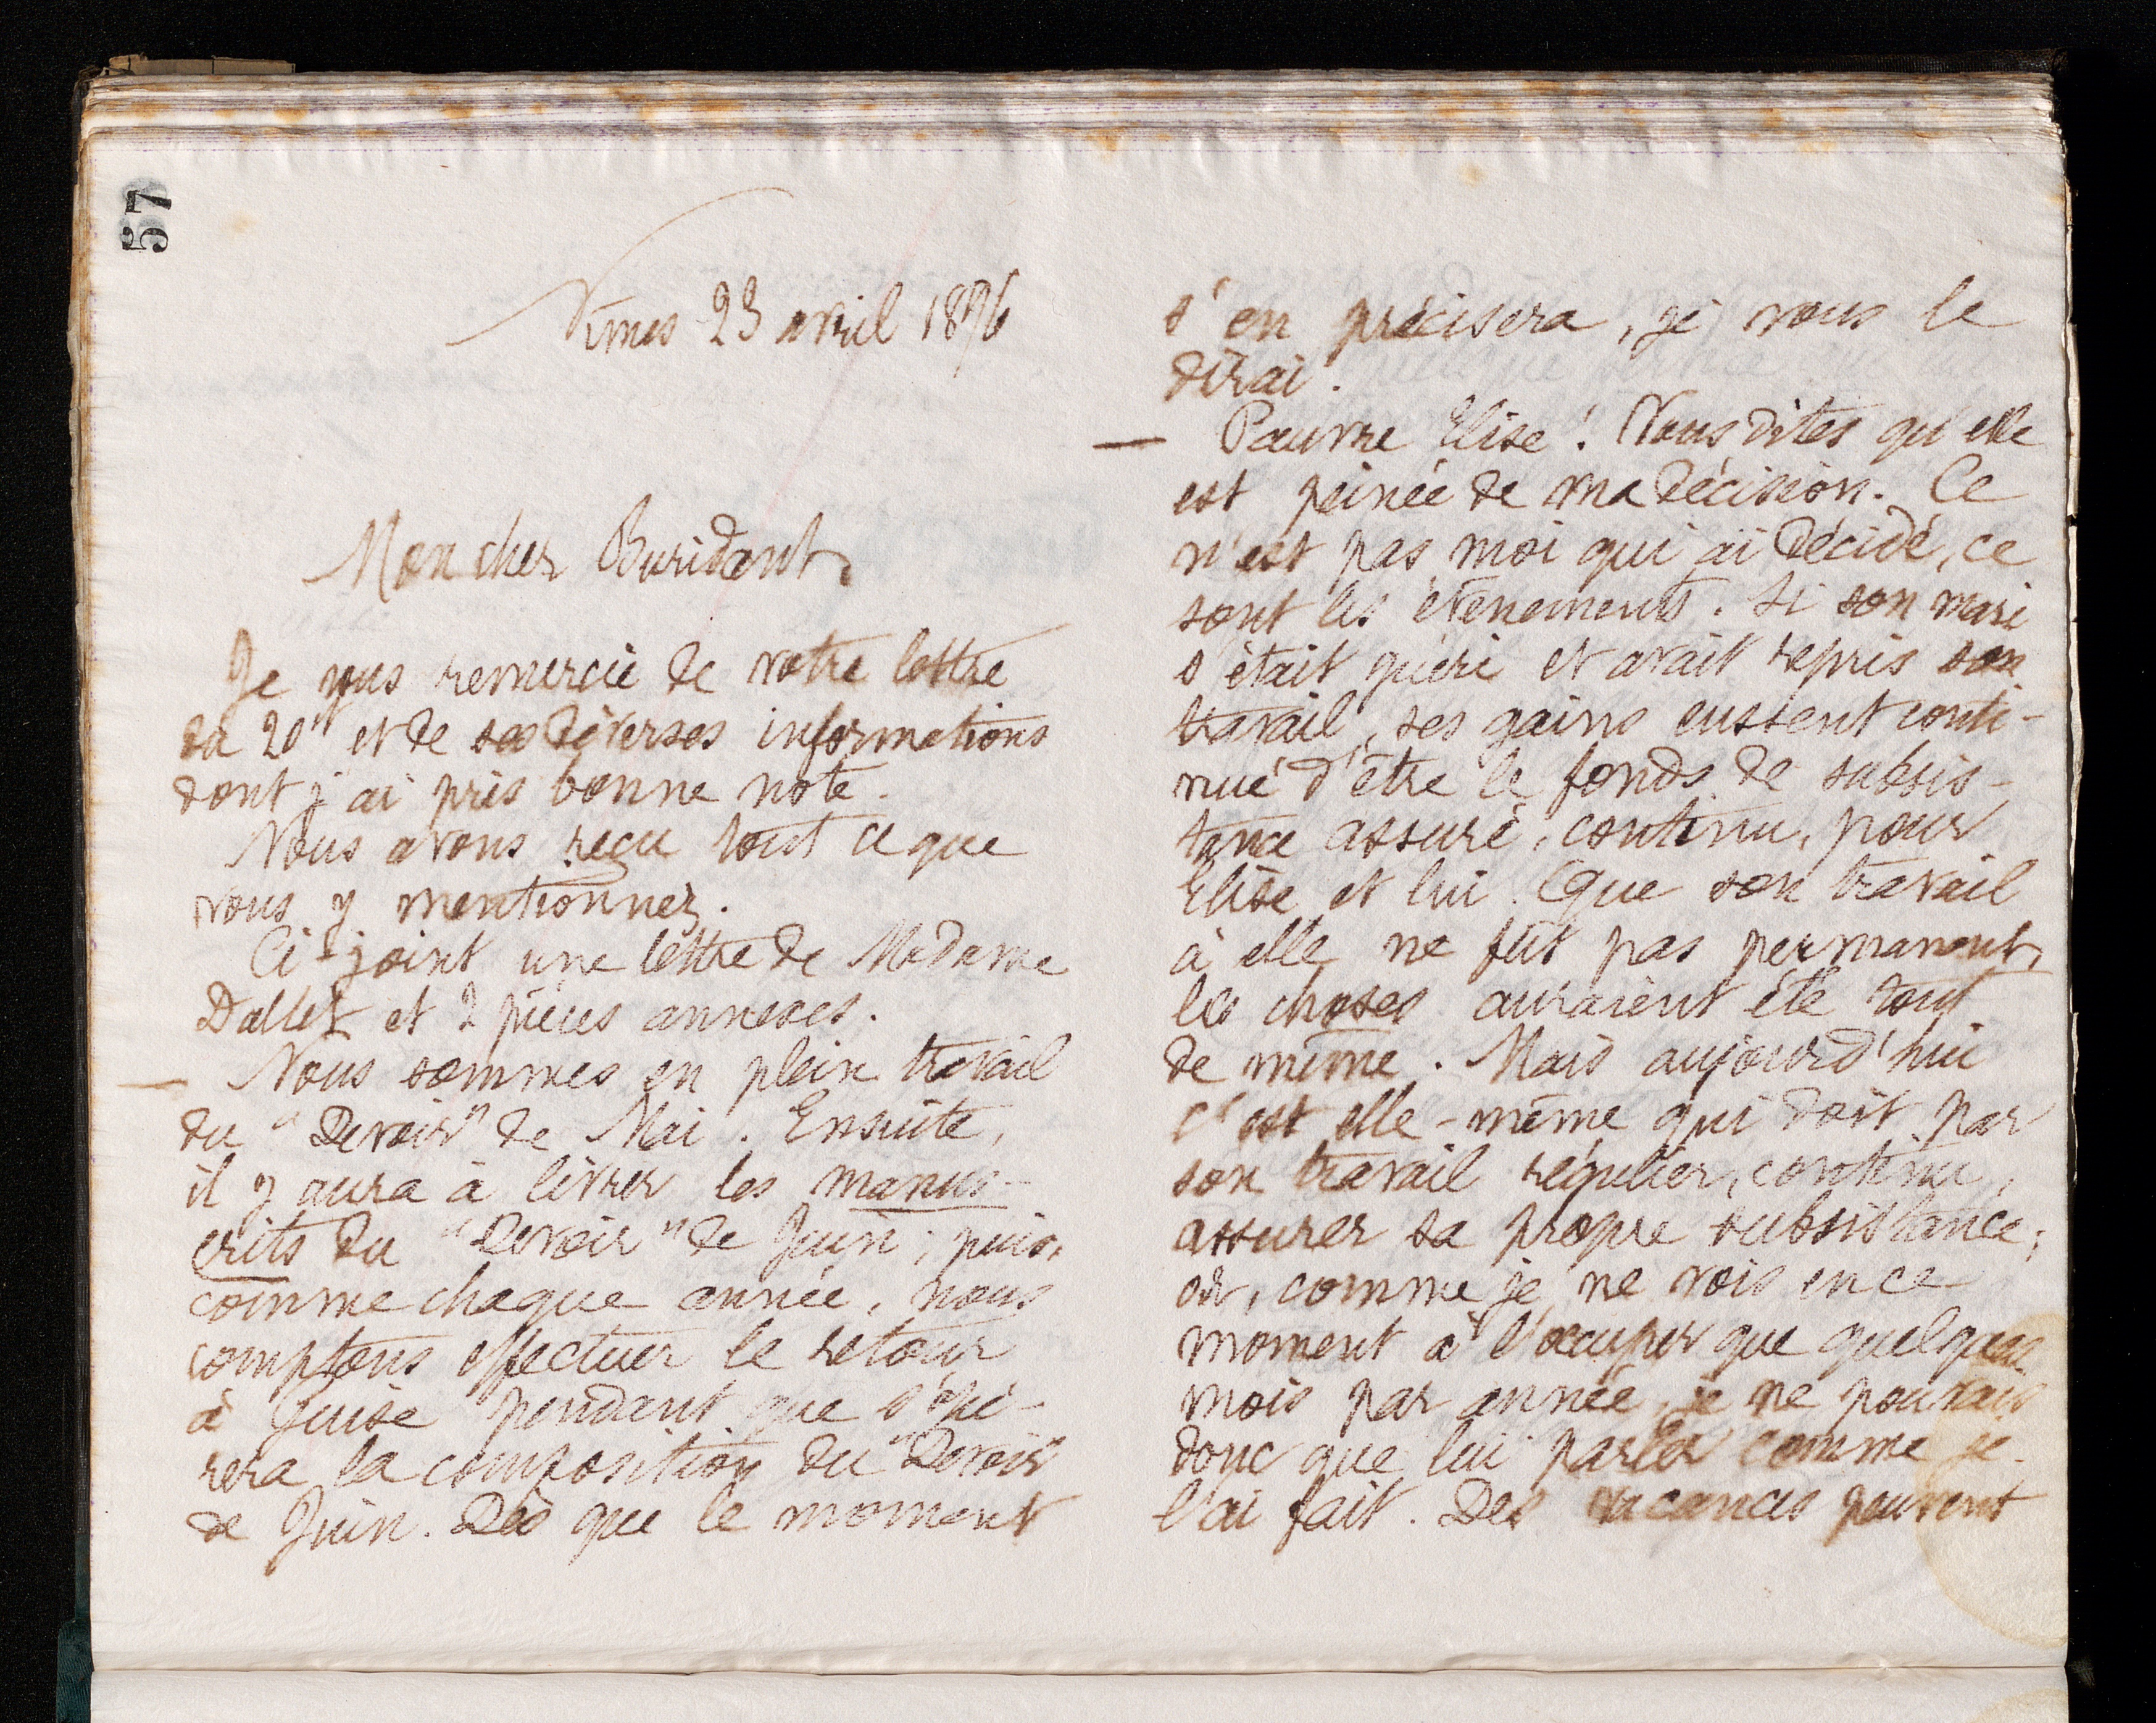 57
Nîmes 23 avril 1896
Mon cher Buridant,
Je vous remercie de votre lettre
du 20 et de ses diverses informations
dont j'ai pris bonne note.
Nous avons reçu tout ce que
vous y mentionnez.
Ci-joint une lettre de Madame
Dallet et 2 pièces annexes.
— Nous sommes en plein travail
du "Devoir" de Mai. Ensuite,
il y aura à livrer les manus-
crits du "Devoir" de Juin; puis,
comme chaque année, nous
comptons effectuer le retour
à Guise pendant que s'opè-
rera la composition du "Devoir"
de Juin. Dès que le moment
s'en précisera, je vous le
dirai.
— Pauvre Elise! Vous dites qu'elle
est peinée de ma décision. Ce
n'est pas moi qui ai décidé, ce
sont les évènements. Si son mari
s'était guéri et avait repris son
travail, ses gains eussent conti-
nué d'être le fonds de subsis-
tance assuré, continu, pour
Elise et lui. Que son travail
à elle ne fût pas permanent,
les choses auraient été tout
de même. Mais aujourd'hui
c'est elle-même qui doit par
son travail régulier, continu,
assurer sa propre subsistance;
or, comme je ne vois en ce
moment à l'occuper que quelques
mois par année, je ne pouvais
donc que lui parler comme je
l'ai fait. Des vacances peuvent